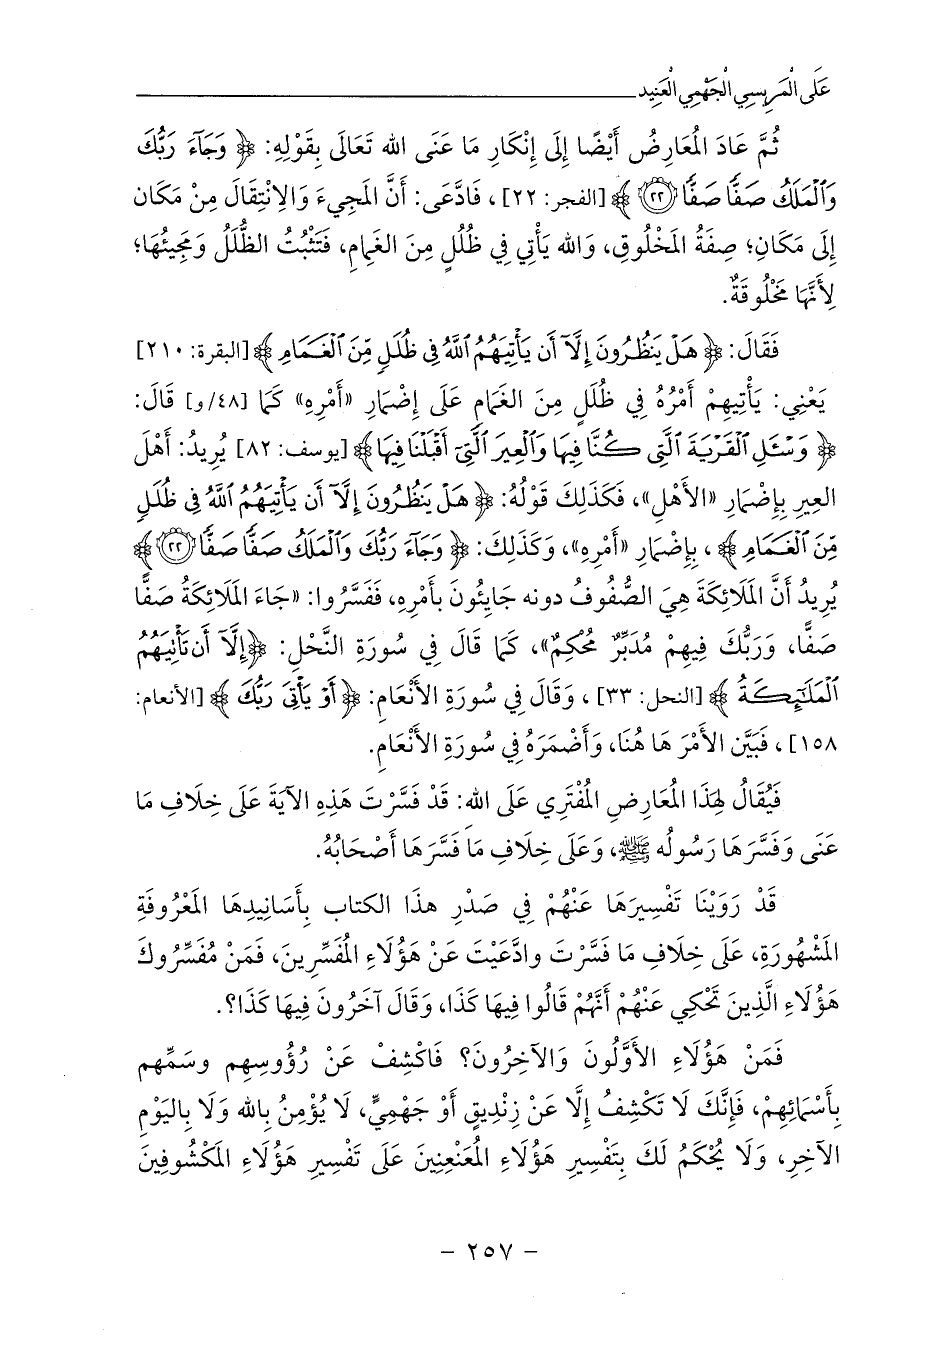 عَلَى الْمَرِيسِي الْجَهْمِي الْعَنِيد
ثُمَّ عَادَ المُعَارِضُ أَيْضًا إِلَى إِنْكَارِ مَا عَنَى الله تَعَالَى بِقَوْلِهِ: ﴿ وَجَآءَ رَبُّكَ
وَٱلْمَلَكُ صَفًّا صَفًّا ۝٢٢ ﴾ [الفجر: ٢٢]، فَادَّعَى: أَنَّ المَجِيءَ وَالِانْتِقَالَ مِنْ مَكَان
إِلَى مَكَانِ؛ صِفَةُ المَخْلُوقِ، وَالله يَأْتِي فِي ظُلُلٍ مِنَ الغَمَامِ، فَتَثْبُتُ الظُّلَلُ وَمَجِيئُهَا؛
لِأَنَّهَا مَخْلُوقَةٌ.
فَقَالَ: ﴿ هَلْ يَنظُرُونَ إِلَّآ أَن يَأْتِيَهُمُ ٱللَّهُ فِى ظُلَلٍ مِّنَ ٱلْغَمَامِ ﴾ [البقرة: ٢١٠]
يَعْنِي: يَأْتِيهِمْ أَمْرُهُ فِي ظُلَلٍ مِنَ الغَمَامِ عَلَى إِضْمَارِ «أَمْرِهِ» كَمَا [٤٨/و] قَالَ:
﴿ وَسْـَٔلِ ٱلْقَرْيَةَ ٱلَّتِى كُنَّا فِيهَا وَٱلْعِيرَ ٱلَّتِىٓ أَقْبَلْنَا فِيهَا ﴾ [يوسف: ٨٢] يُرِيدُ: أَهْلَ
العِيرِ بِإِضْمَارِ «الأَهْلِ»، فَكَذَلِكَ قَوْلُهُ: ﴿ هَلْ يَنظُرُونَ إِلَّآ أَن يَأْتِيَهُمُ ٱللَّهُ فِى ظُلَلٍ
مِّنَ ٱلْغَمَامِ ﴾، بِإِضْمَارِ «أَمْرِهِ»، وَكَذَلِكَ: ﴿ وَجَآءَ رَبُّكَ وَٱلْمَلَكُ صَفًّا صَفًّا ۝٢٢ ﴾
يُرِيدُ أَنَّ المَلَائِكَةَ هِيَ الصُّفُوفُ دونه جَايِئُونَ بِأَمْرِهِ، فَفَسَّرُوا: «جَاءَ المَلَائِكَةُ صَفًّا
صَفًّا، وَرَبُّكَ فِيهِمْ مُدَبِّرٌ مُحْكِمٌ»، كَمَا قَالَ فِي سُورَةِ النَّحْلِ: ﴿إِلَّآ أَن تَأْتِيَهُمُ
ٱلْمَلَٰٓئِكَةُ ﴾ [النحل: ٣٣]، وَقَالَ فِي سُورَةِ الأَنْعَامِ: ﴿ أَوْ يَأْتِىَ رَبُّكَ ﴾ [الأنعام:
١٥٨]، فَبَيَّن الأَمْرَ هَا هُنَا، وَأَضْمَرَهُ فِي سُورَةِ الأَنْعَامِ.
فَيُقَالُ لِهَذَا المُعَارِضِ المُفْتَرِي عَلَى الله: قَدْ فَسَّرْتَ هَذِهِ الآيَةَ عَلَى خِلَافِ مَا
عَنَى وَفَسَّرَهَا رَسُولُه ﷺ، وَعَلَى خِلَافِ مَا فَسَّرَهَا أَصْحَابُهُ.
قَدْ رَوَيْنَا تَفْسِيرَهَا عَنْهُمْ فِي صَدْرِ هذَا الكتاب بِأَسَانِيدِهَا المَعْرُوفَةِ
المَشْهُورَةِ، عَلَى خِلَافِ مَا فَسَّرْتَ وادَّعَيْتَ عَنْ هَؤُلَاءِ المُفَسِّرِينَ، فَمَنْ مُفَسِّرُوكَ
هَؤُلَاءِ الَّذِينَ تَحْكِي عَنْهُمْ أَنَّهُمْ قَالُوا فِيهَا كَذَا، وَقَالَ آخَرُونَ فِيهَا كَذَا؟.
فَمَنْ هَؤُلَاءِ الأَوَّلُونَ وَالآخِرُونَ؟ فَاكْشِفْ عَنْ رُؤُوسِهِم وسَمِّهِم
بِأَسْمَائِهِمْ، فَإِنَّكَ لَا تَكْشِفُ إِلَّا عَنْ زِنْدِيقٍ أَوْ جَهْمِيٍّ، لَا يُؤْمِنُ بِالله وَلَا بِاليَوْمِ
الآخِرِ، وَلَا يُحْكَمُ لَكَ بِتَفْسِيرِ هَؤُلَاءِ المُعَنْعِنِينَ عَلَى تَفْسِيرِ هَؤُلَاءِ المَكْشُوفِينَ
– ٢٥٧ –